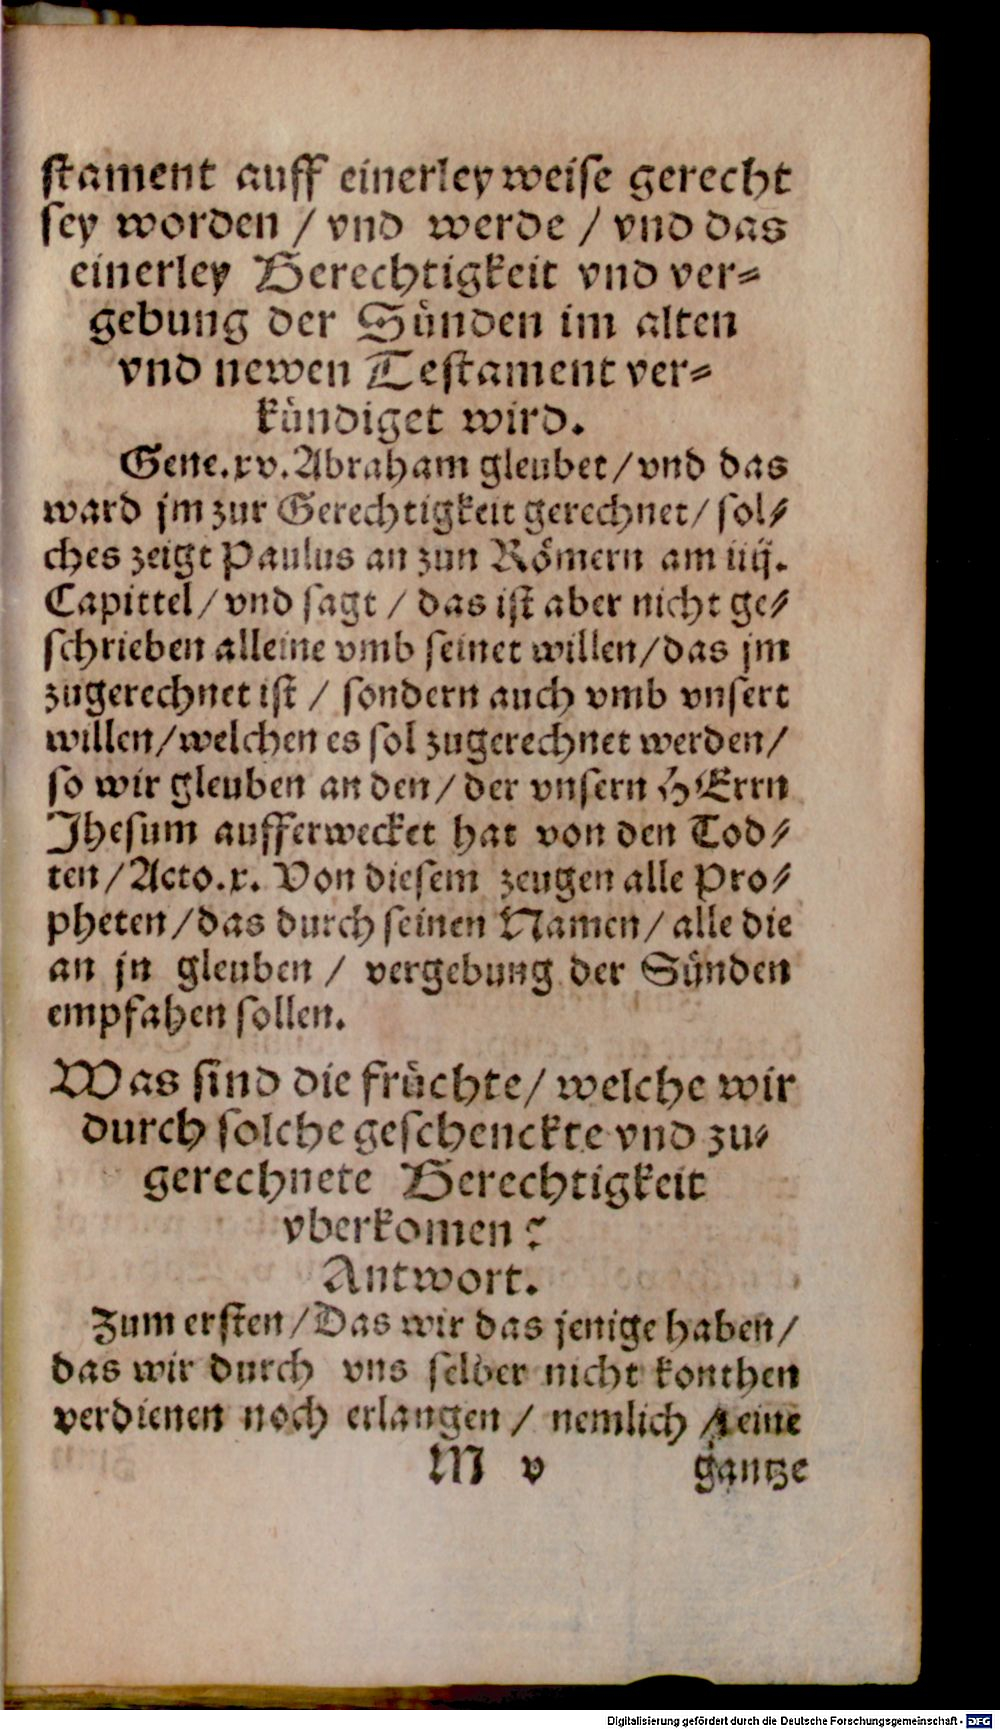 stament auff einerley weise gerecht
sey worden / vnd werde / vnd das
einerley Gerechtigkeit vnd ver⸗
gebung der Sünden im alten
vnd newen Testament ver⸗
kündiget wird.
Gene.xv. Abraham gleubet / vnd das
ward jm zur Gerechtigkeit gerechnet / sol⸗
ches zeigt Paulus an zun Römern am iiij.
Capittel / vnd sagt / das ist aber nicht ge⸗
schrieben alleine vmb seinet willen / das jm
zugerechnet ist / sondern auch vmb vnsert
willen / welchen es sol zugerechnet werden /
so wir gleuben an den / der vnsern HErrn
Jhesum aufferwecket hat von den Tod⸗
ten / Acto.x. Von diesem zeugen alle Pro⸗
pheten / das durch seinen Namen / alle die
an jn gleuben / vergebung der Sünden
empfahen sollen.
Was sind die früchte / welche wir
durch solche geschenckte vnd zu⸗
gerechnete Gerechtigkeit
vberkomen?
Antwort.
Zum ersten / Das wir das jenige haben /
das wir durch vns selber nicht konthen
verdienen noch erlangen / nemlich / eine
M v gantze
Digitalisierung gefördert durch die Deutsche Forschungsgemeinschaft - DFG